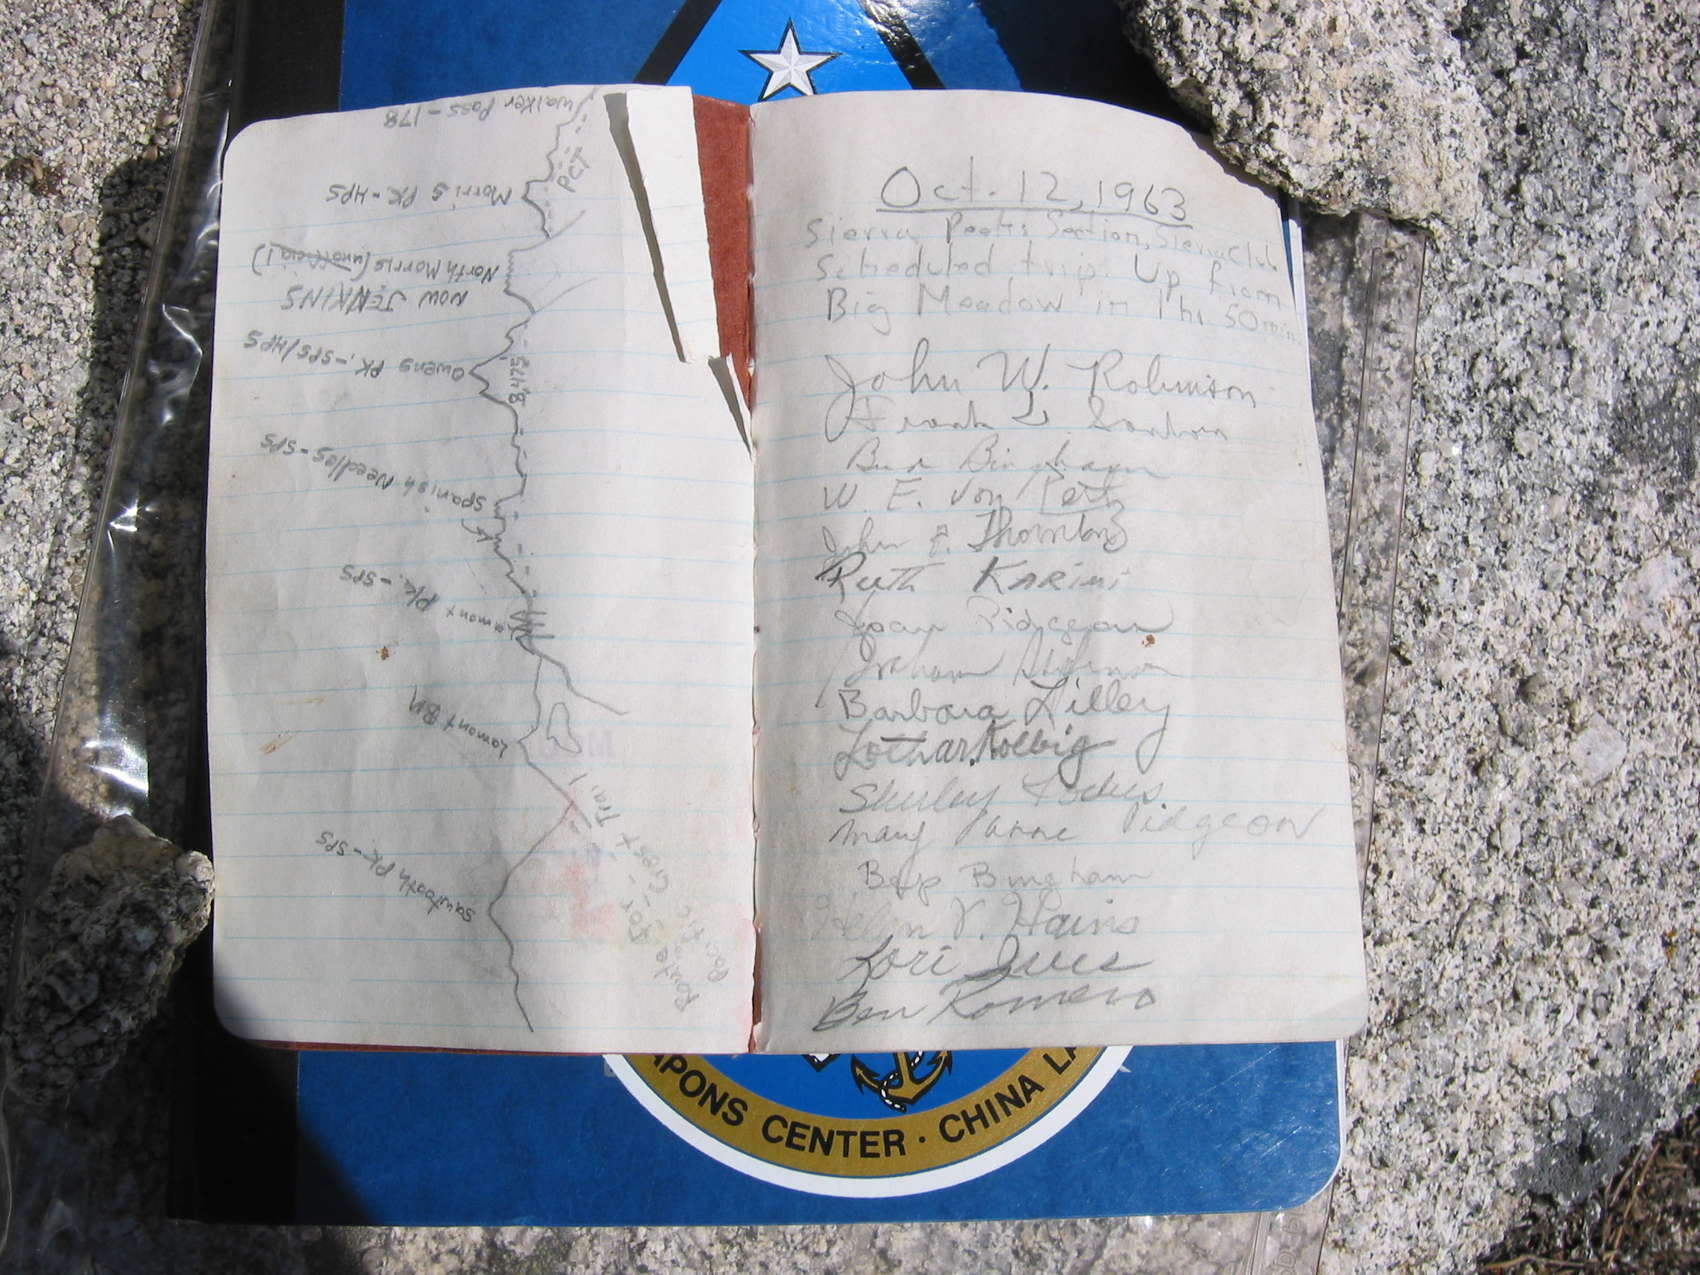 Walker Pass - 178
PCT
Morris PK - HPS
North Morris (unofficial)
NOW JENKINS
Owens PK. - SPS/HPS
8475
Spanish Needles - SPS
Lamont Pk. - SPS
Lamont BM
Sawtooth Pk - SPS
Route for
Pacific Crest Trail
Oct. 12, 1963
Sierra Peaks Section, Sierra Club
scheduled trip. Up from
Big Meadow in 1 hr 50 min
John W. Robinson
Frank J. Sanborn
Bud Bingham
W. E. Von Pertz
John F. Thornton
Ruth
Joan Pidgeon
Graham
Barbara Lilley
Lothar Kolbig
Shirley
Mary Anne Pidgeon
Bingham
Helen V. Hains
Lori Ives
Ben Romero
APONS CENTER · CHINA LA